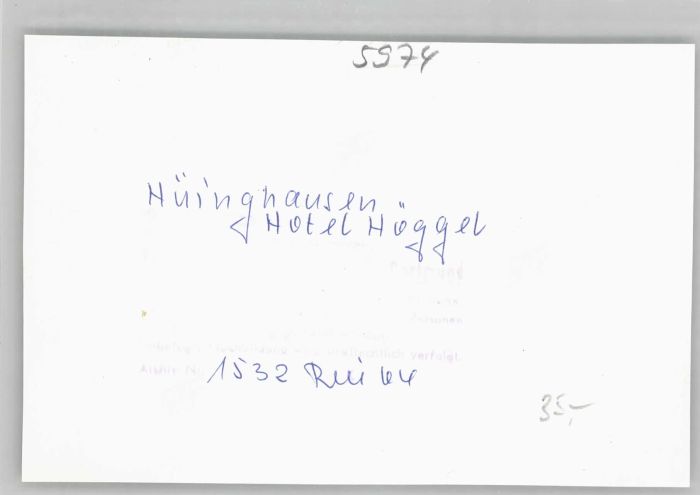 5974
Hüinghausen
Hotel Höggel
Dortmund
strafrechtlich verfolgt.
Archiv Nr.
1532
35,-